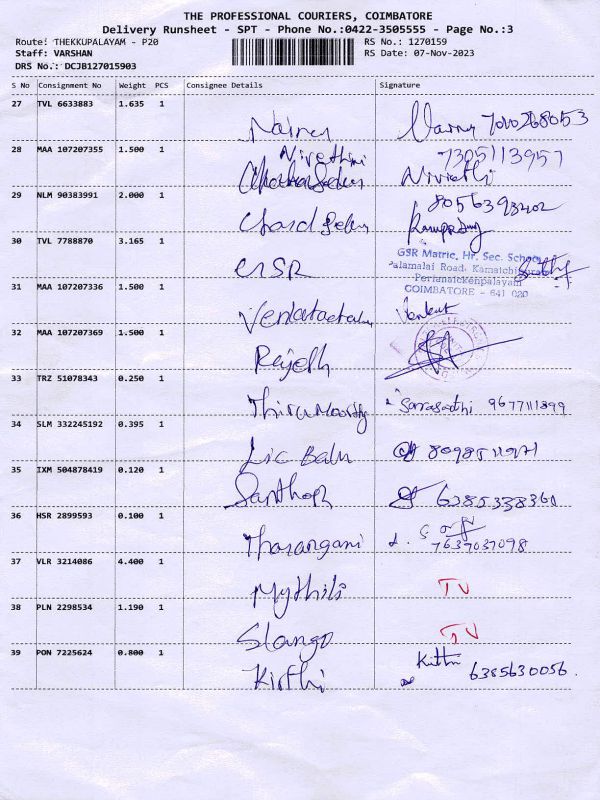 THE PROFESSIONAL COURIERS, COIMBATORE
Delivery Runsheet - SPT - Phone No.:0422-3505555 - Page No.:3
Route: THEKKUPALAYAM - P20 RS No.: 1270159
Staff: VARSHAN RS Date: 07-Nov-2023
DRS No.: DCJB127015903
S No Consignment No Weight PCS Consignee Details Signature
27 TVL 6633883 1.635 1
7010268053
28 MAA 107207355 1.500 1
Nivethini 7305113957
29 NLM 90383991 2.000 1
8056393402
30 TVL 7788870 3.165 1
GSR
GSR Matric. Hr. Sec. School
Palamalai Road, Kamatchipuram
Perianaickenpalayam
COIMBATORE - 641 020
31 MAA 107207336 1.500 1
Venkat
32 MAA 107207369 1.500 1
Rajesh
33 TRZ 51078343 0.250 1
Thirumoorthy 9677111899
34 SLM 332245192 0.395 1
Lic Balu
35 IXM 504878419 0.120 1
Santhosh 6385338360
36 HSR 2899593 0.100 1
Tharangani 7637037098
37 VLR 3214086 4.400 1
Mythili TV
38 PLN 2298534 1.190 1
Slango TV
39 PON 7225624 0.800 1
Kirthi 6385630056.